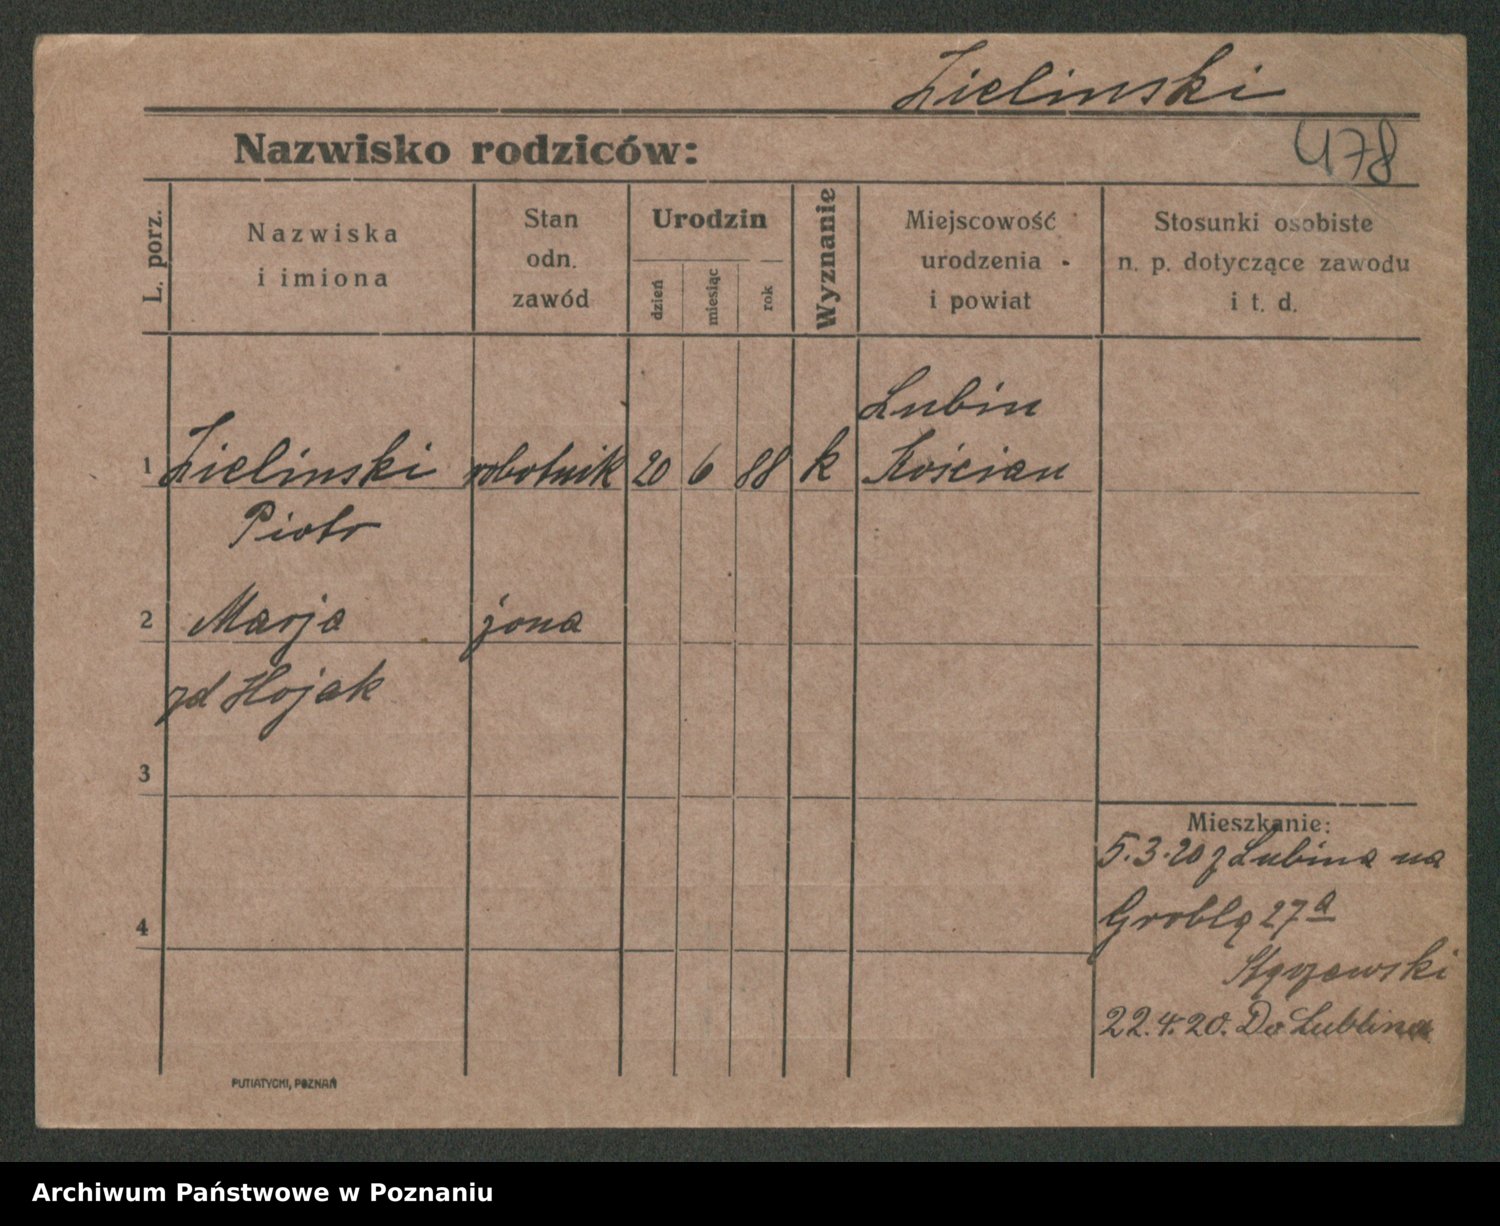 Zielinski
Nazwisko rodziców:
478
L. porz.
Nazwiska
i imiona
Stan
odn.
zawód
Urodzin
dzień
miesiąc
rok
Wyznanie
Miejscowość
urodzenia
i powiat
Stosunki osobiste
n. p. dotyczące zawodu
i t. d.
Lubin
1 Zielinski robotnik 20 6 88 k Kościan
Piotr
2 Marja żona
zd Hojak
3
Mieszkanie:
5.3.20 z Lubina na
Groblą 27a
4
22.4.20. Do Lublina
PUTIATYCKI, POZNAŃ
Archiwum Państwowe w Poznaniu